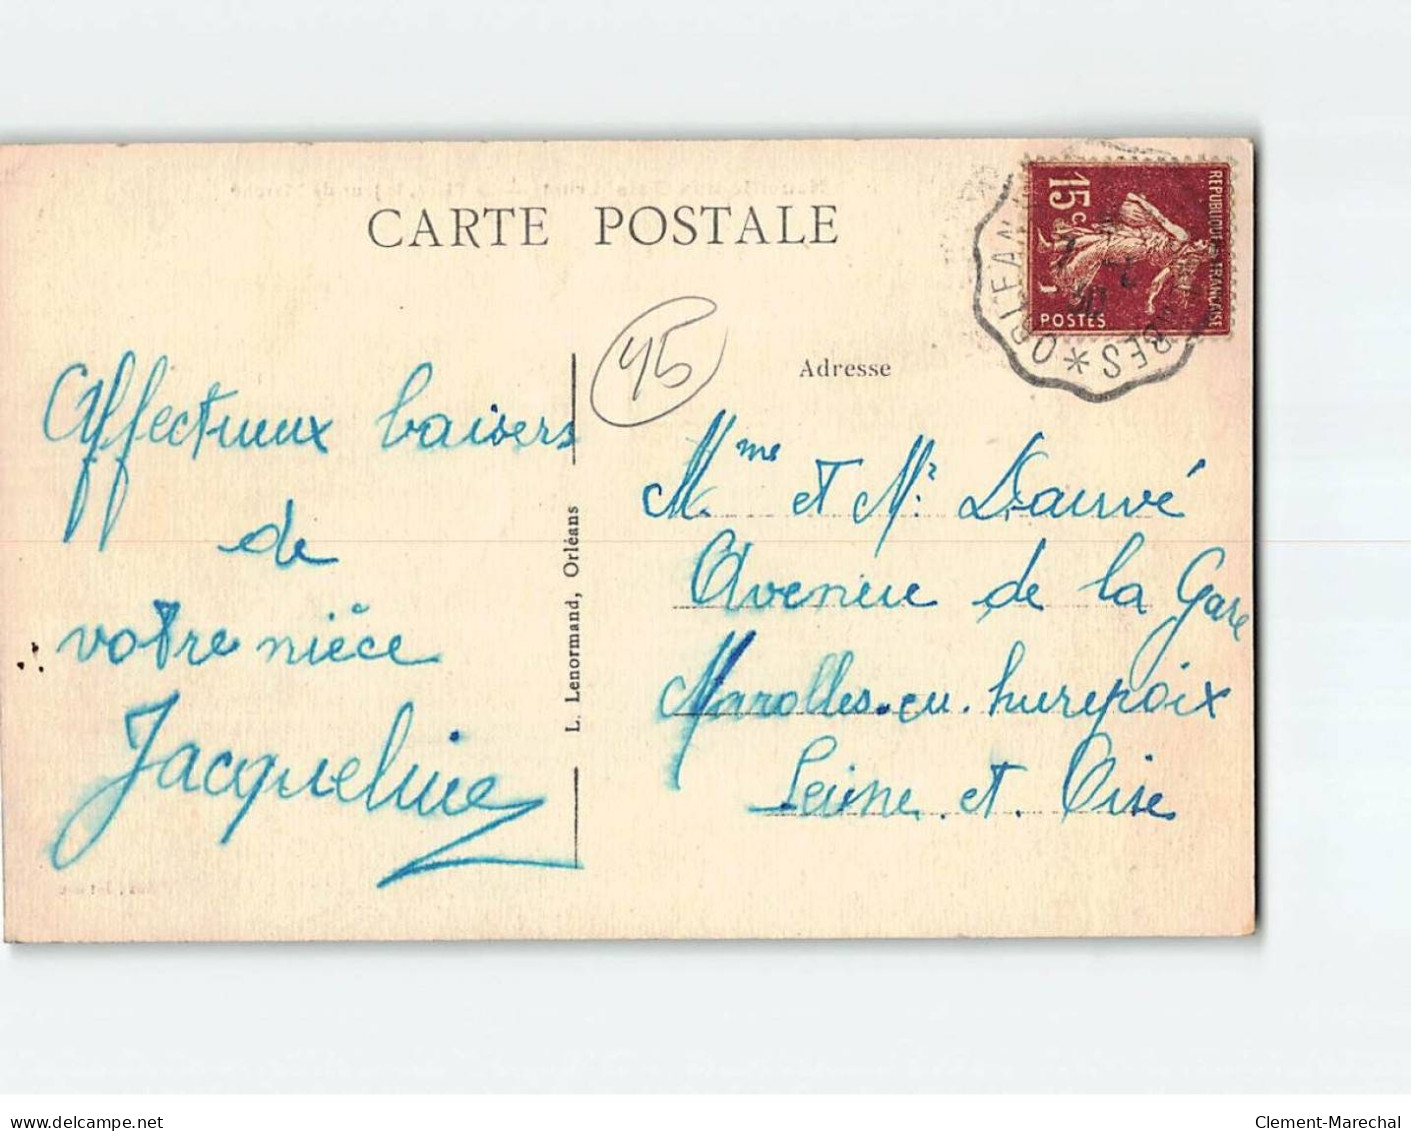 CARTE POSTALE
15c
REPUBLIQUE FRANÇAISE
POSTES
45
Adresse
Affectueux baisers
de
votre nièce
Jacqueline
L. Lenormand, Orléans
Mme et Mr Dauvé
Avenue de la Gare
Marolles.en.hurepoix
Seine.et.Oise
delcampe.net
Clement-Marechal